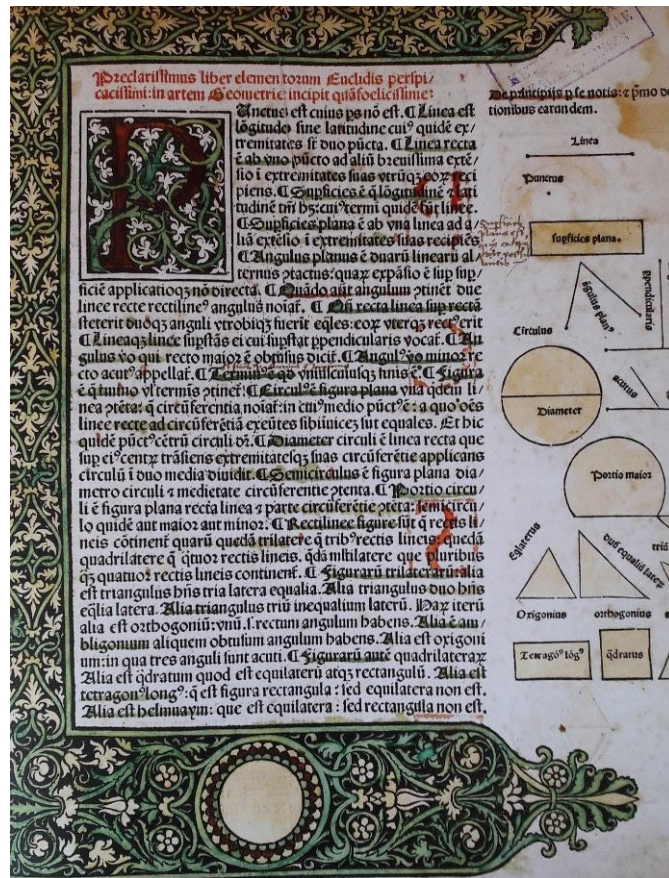 Preclarissimus liber elementorum Euclidis perspi/
cacissimi: in artem Geometrie incipit quãfoelicissime:
Punctus est cuius ps nõ est. ¶ Linea est
lõgitudo sine latitudine cuiꝰ quidẽ ex/
tremitates sũt duo pũcta. ¶ Linea recta
ẽ ab vno pũcto ad aliũ breuissima extẽ/
sio ĩ extremitates suas vtrũqꝫ eoꝝ reci
piens. ¶ Supficies ẽ q̃ lõgitudinẽ ⁊ lati
tudinẽ tm̃ hꝫ: cuiꝰ termi quidẽ sũt linee.
¶ Supficies plana ẽ ab vna linea ad a/
liã extẽsio ĩ extremitates suas recipiẽs
¶ Angulus planus ẽ duarũ linearũ al/
ternus ꝯtactus: quaꝝ expãsio ẽ sup sup/
ficiẽ applicatioqꝫ nõ directa. ¶ Quãdo aũt angulum ꝯtinẽt due
linee recte rectilineꝰ angulus noiať. ¶ Qñ recta linea sup rectã
steterit duoqꝫ anguli vtrobiqꝫ fuerit eq̃les: eoꝝ vterqꝫ rectꝰ erit
¶ Lineaqꝫ linee supstãs ei cui supstat ppendicularis vocať. ¶ An
gulus vo qui recto maior ẽ obtusus diciť. ¶ Angulꝰ vo minor re
cto acutꝰ appellať. ¶ Terminꝰ ẽ qd vniuscuiusqꝫ finis ẽ. ¶ Figura
ẽ q̃ tmino vl terminis ꝯtineť. ¶ Circulꝰ ẽ figura plana vna qdem li/
nea ꝯtẽta: q̃ circũferentia noiať: in cuiꝰ medio pũctꝰ ẽ: a quo oẽs
linee recte ad circũferẽtiã exeũtes sibiinuicẽ sut equales. Et hic
quidẽ pũctꝰ cẽtrũ circuli dr̃. ¶ Diameter circuli ẽ linea recta que
sup eiꝰ centꝝ trãsiens extremitatesqꝫ suas circũferẽtie applicans
circulũ ĩ duo media diuidit. ¶ Semicirculus ẽ figura plana dia/
metro circuli ⁊ medietate circũferentie ꝯtenta. ¶ Portio circu/
li ẽ figura plana recta linea ⁊ parte circũferẽtie ꝯtẽta: semicircu/
lo quidẽ aut maior aut minor. ¶ Rectilinee figure sũt q̃ rectis li/
neis cõtinent quarũ quedã trilatere q̃ tribꝰ rectis lineis: quedã
quadrilatere q̃ qtuor rectis lineis. qdã mltilatere que pluribus
qꝫ quatuor rectis lineis continenť. ¶ Figurarũ trilaterarũ: alia
est triangulus hñs tria latera equalia. Alia triangulus duo hñs
eq̃lia latera. Alia triangulus triũ inequalium laterũ. Haꝝ iterũ
alia est orthogoniũ: vnũ .s. rectum angulum habens. Alia ẽ am/
bligonium aliquem obtusum angulum habens. Alia est oxigoni
um: in qua tres anguli sunt acuti. ¶ Figurarũ autẽ quadrilateraꝝ
Alia est q̃dratum quod est equilaterũ atqꝫ rectangulũ. Alia est
tetragonꝰ longꝰ: q̃ est figura rectangula: sed equilatera non est.
Alia est helmuaym: que est equilatera: sed rectangula non est.
De principijs p se notis: ⁊ p̃mo de
tionibus earandem.
Linea
Punctus
supficies plana.
Circulus
ãgulus planꝰ
ppendicularis
Diameter
acutus
Portio maior
Eqlaterus
duũ equaliũ laterũ
triũ
Oxigonius
orthogonius
Tetragõꝰ lõgꝰ
q̃dratus